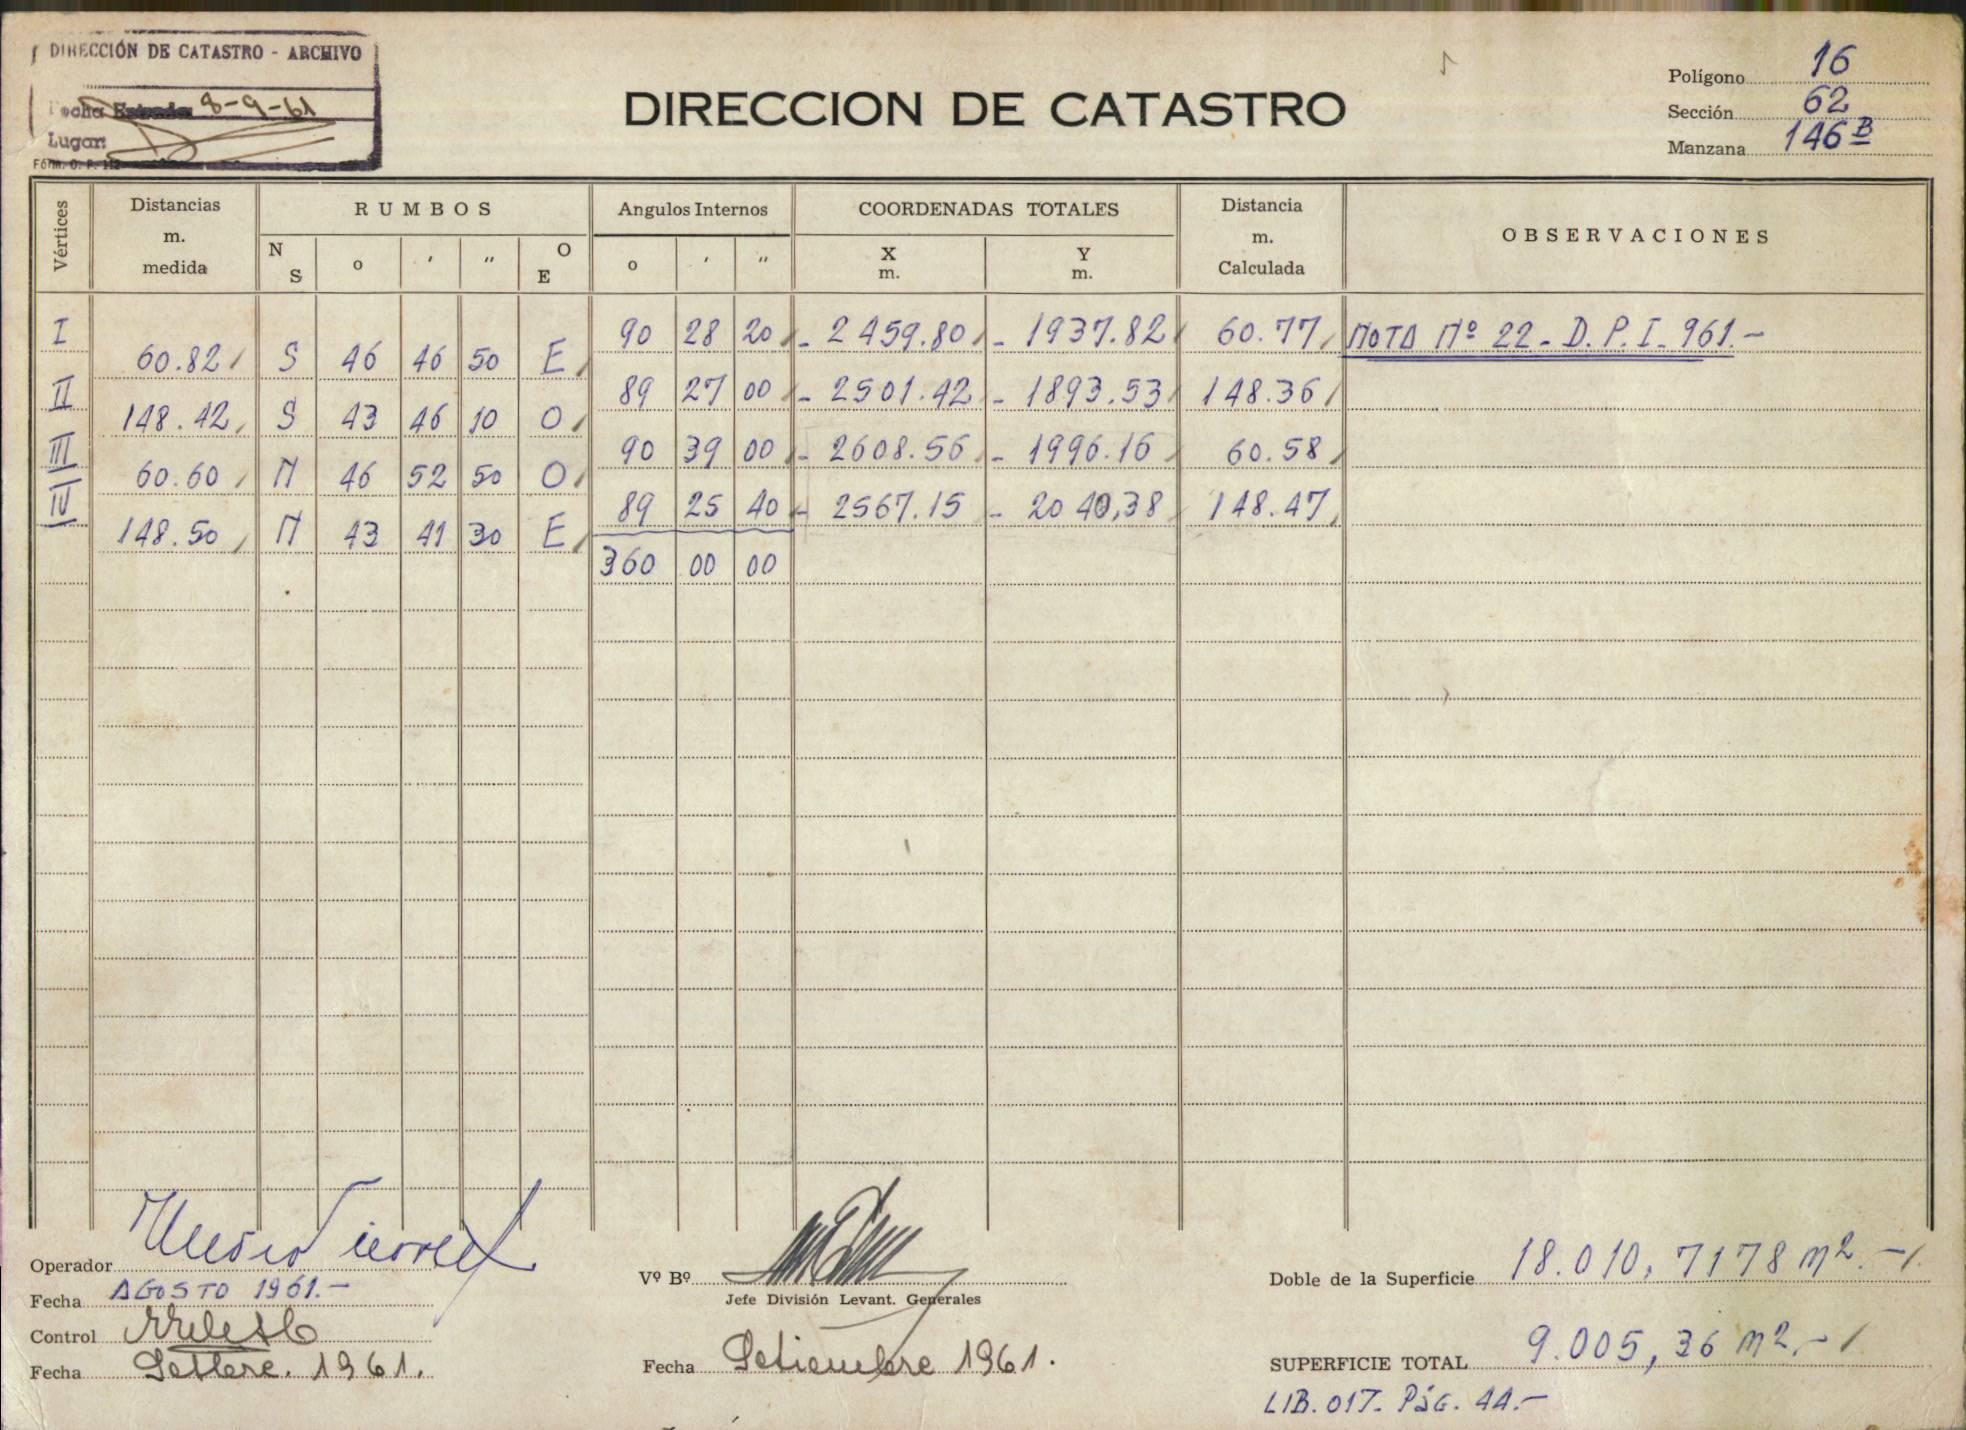 DIRECCIÓN DE CATASTRO - ARCHIVO
Fecha Entrada 8-9-61
Lugar:
DIRECCION DE CATASTRO
Polígono 16
Sección 62
Manzana 146 B
Vértices Distancias m. medida RUMBOS Angulos Internos COORDENADAS TOTALES Distancia m. Calculada OBSERVACIONES
N S o ' " O E o ' " X m. Y m.
I 90 28 20 - 2459.80 - 1937.82 60.77 NOTA Nº 22 - D.P.I. 961.-
60.82 S 46 46 50 E
II 89 27 00 - 2501.42 - 1893.53 148.36
148.42 S 43 46 10 O
III 90 39 00 - 2608.56 - 1996.16 60.58
60.60 N 46 52 50 O
IV 89 25 40 - 2567.15 - 2040,38 148.47
148.50 N 43 41 30 E
360 00 00
Operador
Fecha AGOSTO 1961.-
Control
Fecha Setbre. 1961.
Vº Bº
Jefe División Levant. Generales
Fecha Setiembre 1961.
Doble de la Superficie 18.010,7178 m2.-
SUPERFICIE TOTAL 9.005,36 m2.-
LIB. 017- PÁG. 44.-